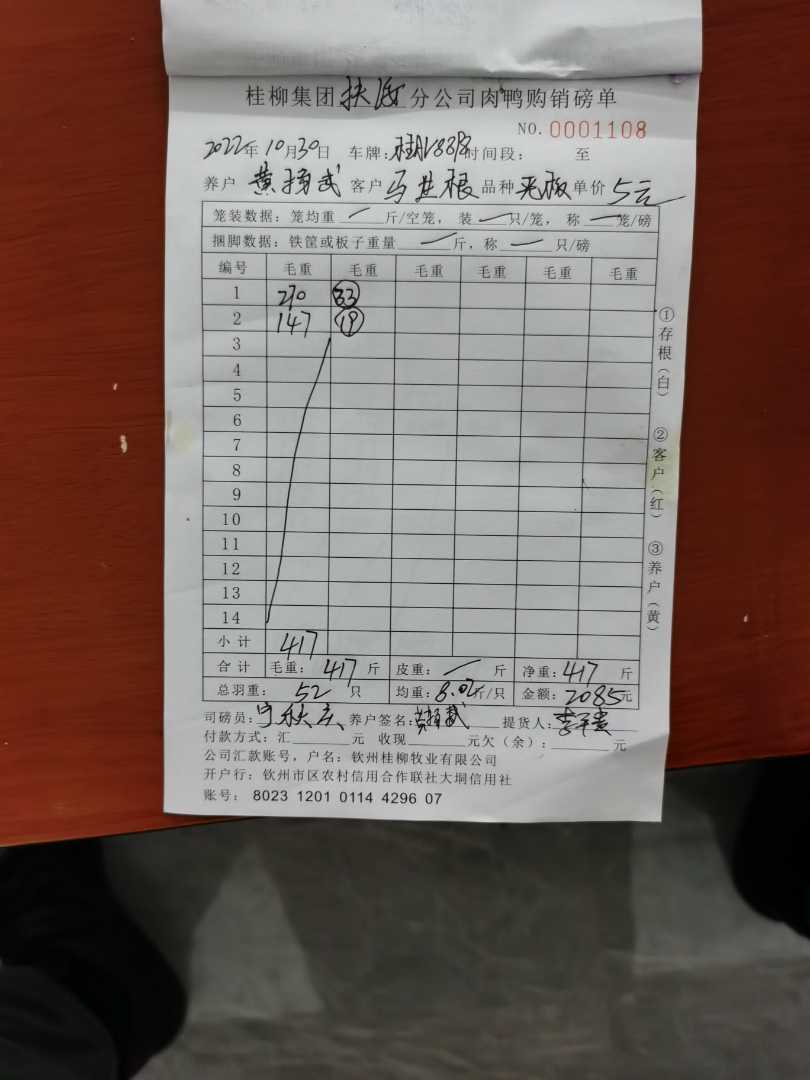 桂柳集团 分公司肉鸭购销磅单
NO. 0001108
2022年10月30日 车牌: 时间段: 至
养户 黄扬武 客户 马世根 品种 单价 5元
笼装数据: 笼均重 / 斤/空笼, 装 一 只/笼, 称 一 笼/磅
捆脚数据: 铁筐或板子重量 一 斤, 称 一 只/磅
编号 毛重 毛重 毛重 毛重 毛重 毛重
1 270 33
2 147 19
3
4
5
6
7
8
9
10
11
12
13
14
小计 417
合计 毛重: 417 斤 皮重: 一 斤 净重: 417 斤
总羽重: 52 只 均重: 8.02斤/只 金额: 2085元
司磅员: 养户签名: 黄扬武 提货人:
付款方式: 汇 元 收现 元欠(余): 元
公司汇款账号, 户名: 钦州桂柳牧业有限公司
开户行: 钦州市区农村信用合作联社大垌信用社
账号: 8023 1201 0114 4296 07
①存根(白) ②客户(红) ③养户(黄)